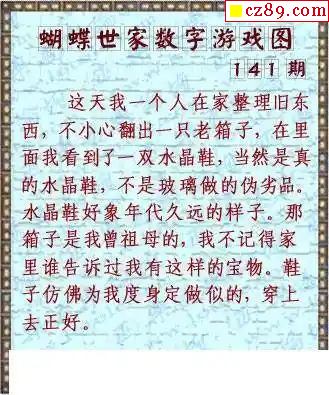 cz89.com
蝴蝶世家数字游戏图
141期
这天我一个人在家整理旧东
西，不小心翻出一只老箱子，在里
面我看到了一双水晶鞋，当然是真
的水晶鞋，不是玻璃做的伪劣品。
水晶鞋好象年代久远的样子。那
箱子是我曾祖母的，我不记得家
里谁告诉过我有这样的宝物。鞋
子仿佛为我度身定做似的，穿上
去正好。